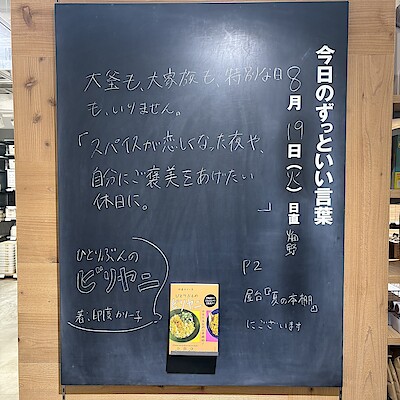 今日のずっといい言葉
8月19日(火)日直 畑野
大釜も、大家族も、特別な日
も、いりません。
「スパイスが恋しくなった夜や、
自分にご褒美をあげたい
休日に。
」
ひとりぶんの
ビリヤニ
著、印度カリー子
P2
屋台『夏の本棚』
にございます